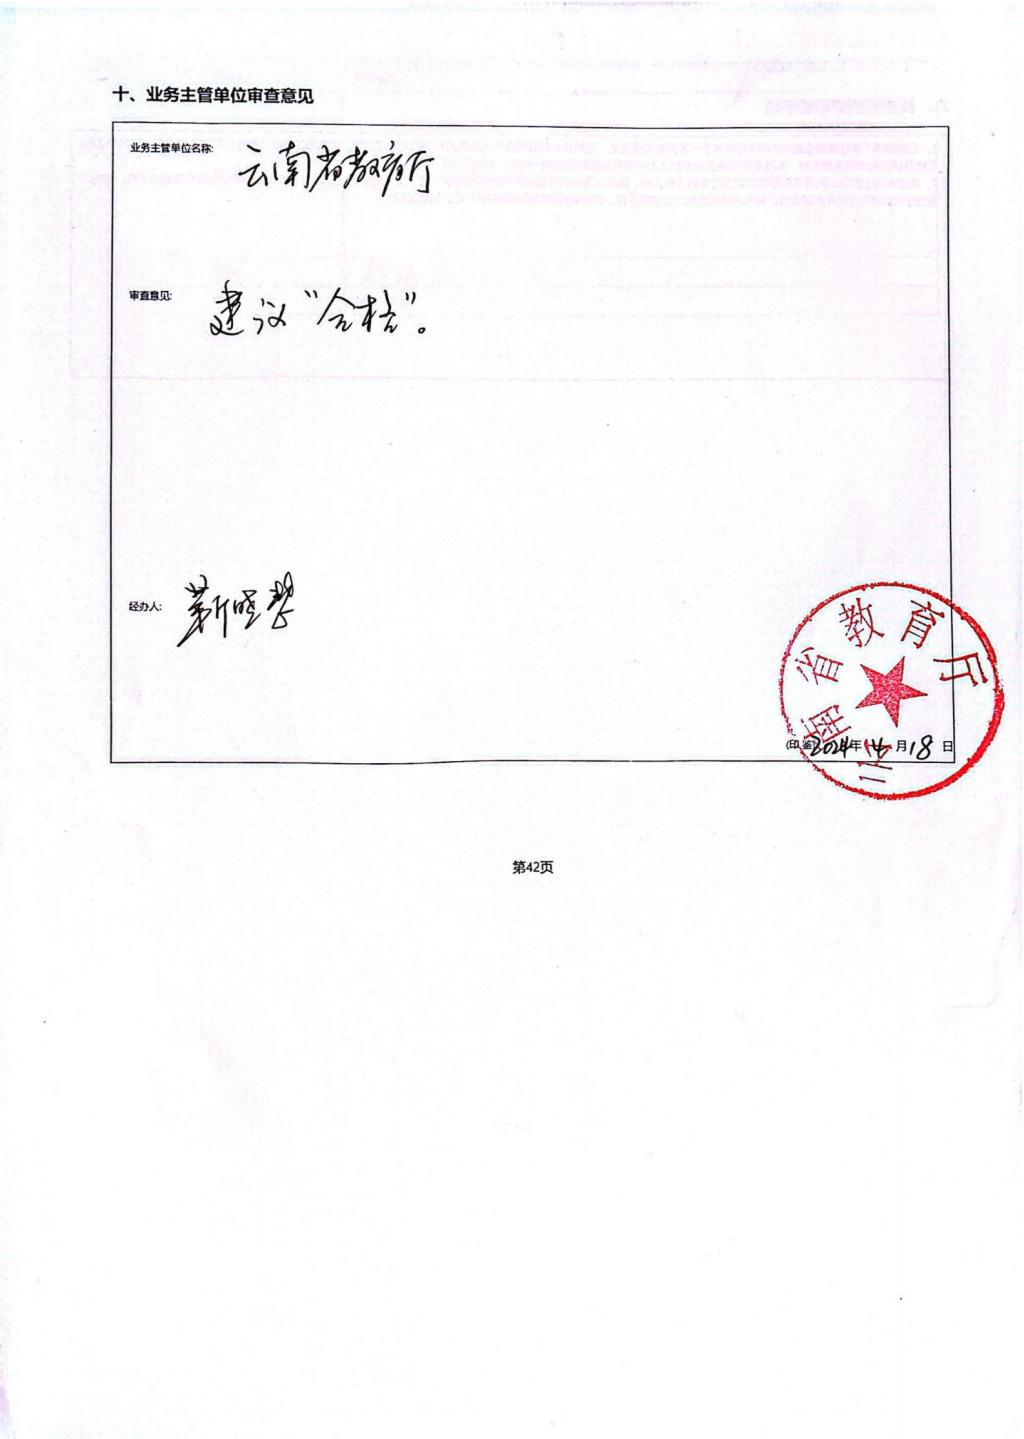 十、业务主管单位审查意见
业务主管单位名称: 云南省教育厅
审查意见: 建议“合格”。
经办人: 靳晓琴
云南省教育厅
(印鉴) 2024年 月18日
第42页